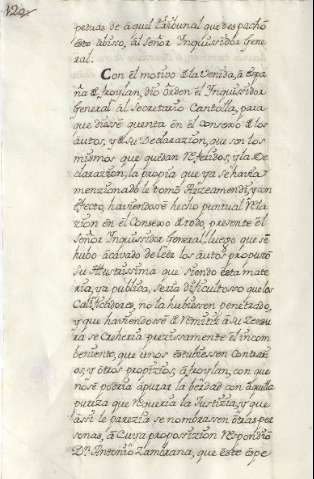 129
pedias de aquel tribunal que despachó
este abiso, al Señor Inquissidor Gene
ral.
Con el motivo de la Venida, a Espa
ña de froylan, dio orden el Inquissidor
General al Secretario Cantolla, para
que diesse quenta en el consexo de los
autos, y de su Declarazion, que son los
mismos que quedan referidos, y la De
clarazion, la propia que ya se havia
menzionado le tomó Arzeamendi, y con
efecto, haviendose hecho puntual Rela
zion en el Consexo de todo, presente el
Señor Inquissidor General, luego que se
hubo acavado de leer los autos propusso
su Illustrissima que siendo esta mate
ria, ya publica, seria dificultosso que los
Calificadores, no la hubiessen penetrado,
y que haviendosse de remitir a su Zensu
ra se creheria precissamente el incom
beniente, que unos estubiessen Contrari
os, y otros propizios, a froylan, con que
no se podria apurar la berdad con aquella
pureza que requeria la Justizia, y que
assi le parezia se nombrasen otras per
sonas, a Cuya proposizion respondio
Dn. Antonio Zambrana, que este espe